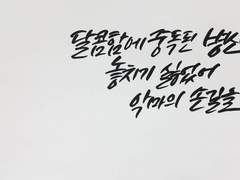 달콤함에 중독된 병신
놓치기 싫었어
악마의 손길을